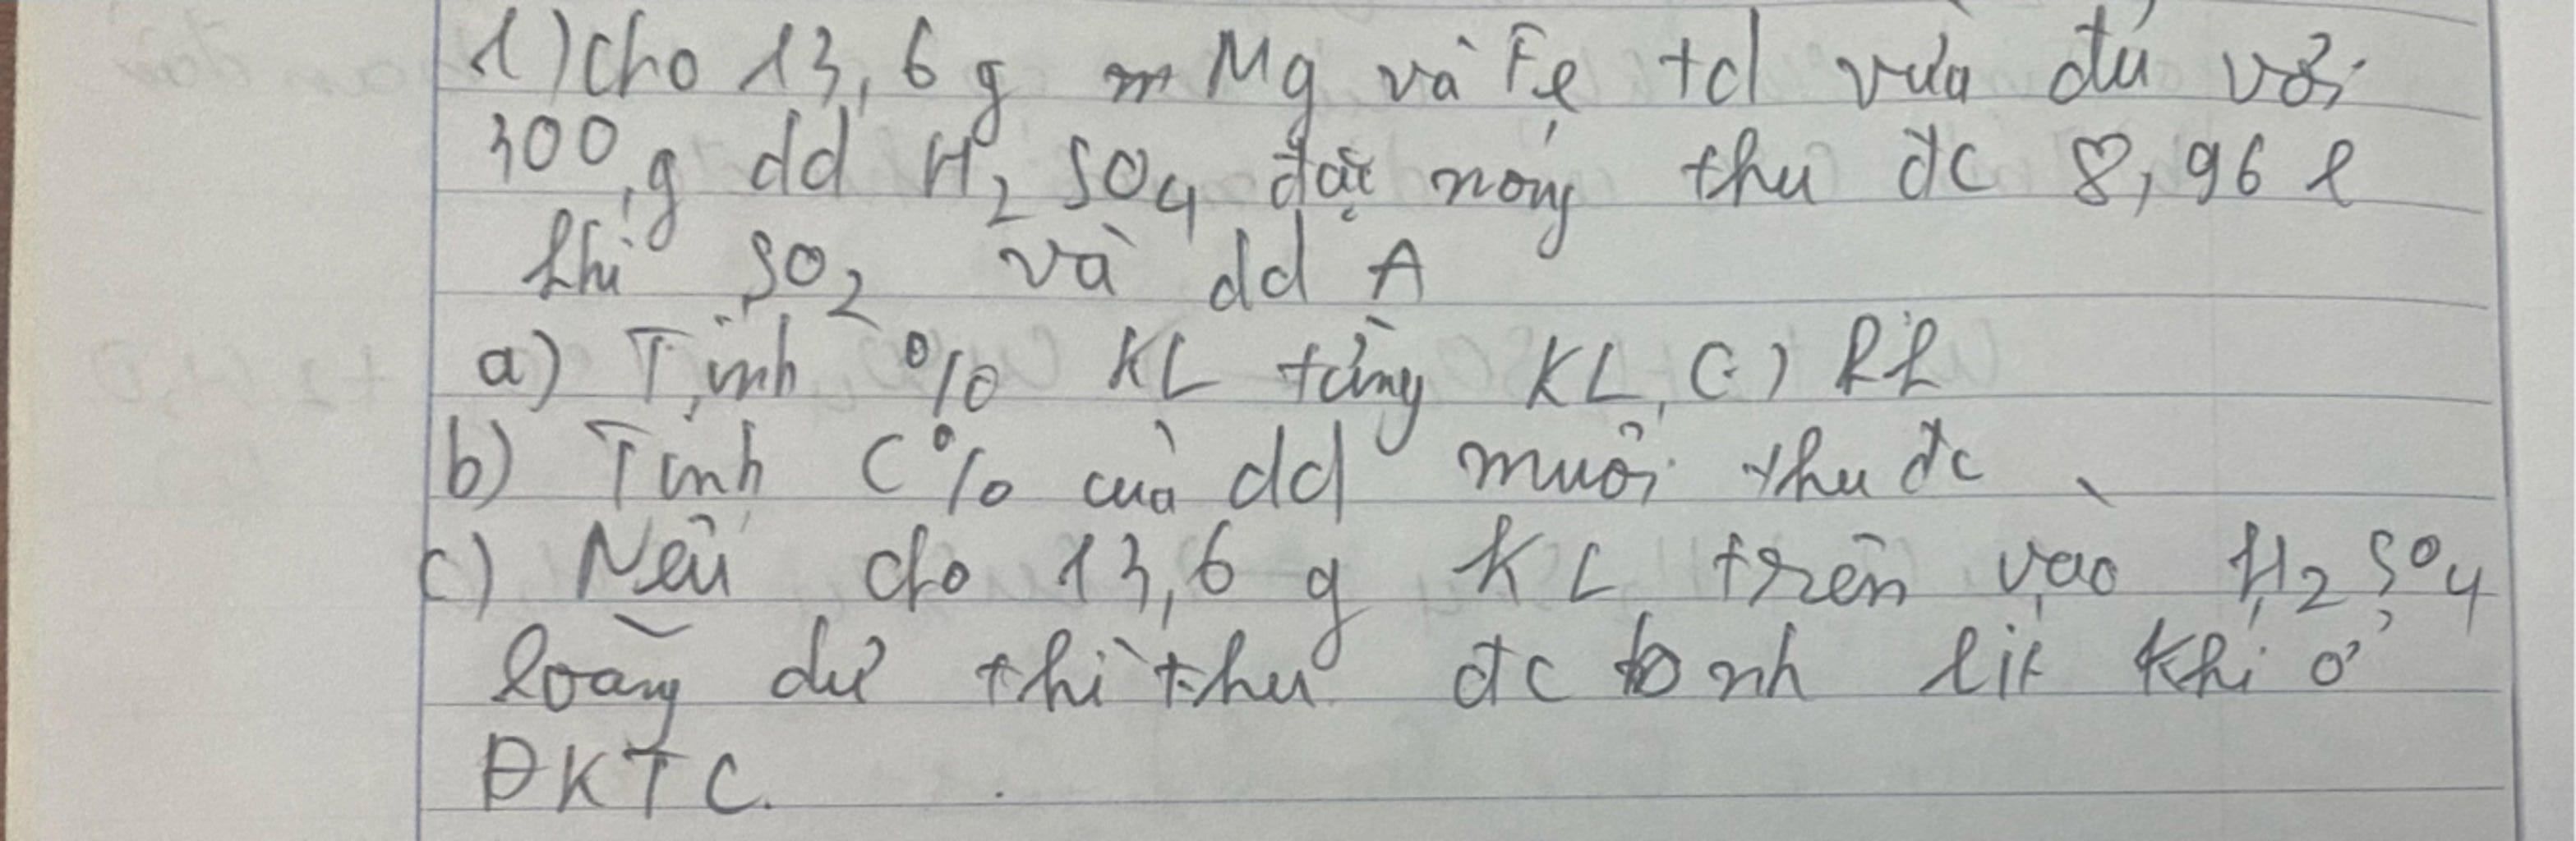 1) Cho 13,6 g Mg và Fe td vừa đủ với
300 g dd H₂SO₄ đặc nóng thu đc 8,96 l
khí SO₂ và dd A
a) Tính % KL từng KL
b) Tính C% của dd muối thu đc
c) Nếu cho 13,6 g KL trên vào H₂SO₄
loãng dư thì thu đc nh lít khí ở
ĐKTC.